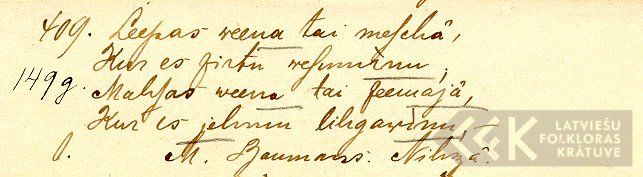 409. Leepas weena tai meschâ,
Kur es zirtu wesumiņu;
149g. Mahjas weena tai seemâjâ,
Kur es jehmu lihgawiņu, —
M. Baumans. Nihzâ.
LFK LATVIEŠU
FOLKLORAS
KRĀTUVE